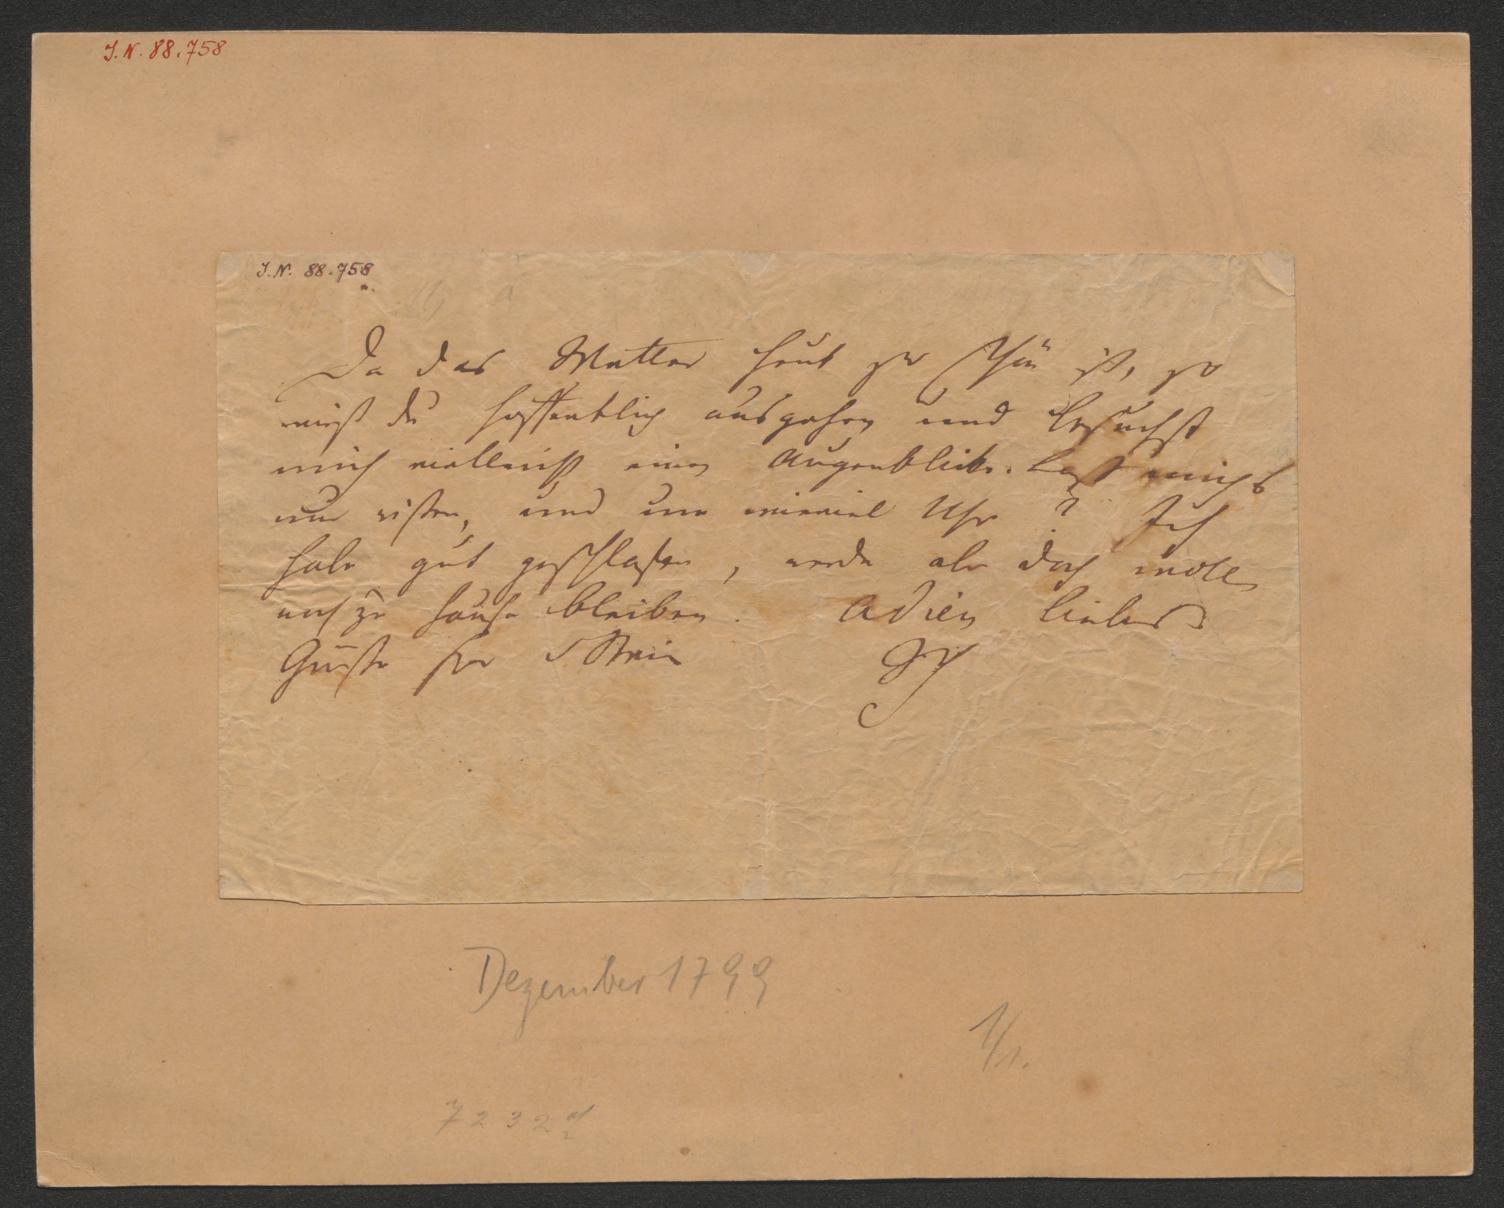 J.N. 88.758
J.N. 88.758
Da das Wetter heut so schön ist, so
wirst du hoffentlich ausgehen und besuchst
mich vielleicht einen Augenblick. Laß michs
nur wißen, und um wieviel Uhr? Ich
habe gut geschlafen, werde aber doch wohl
noch zu Hause bleiben. Adieu liebes
Dezember 1799
1/1.
7232